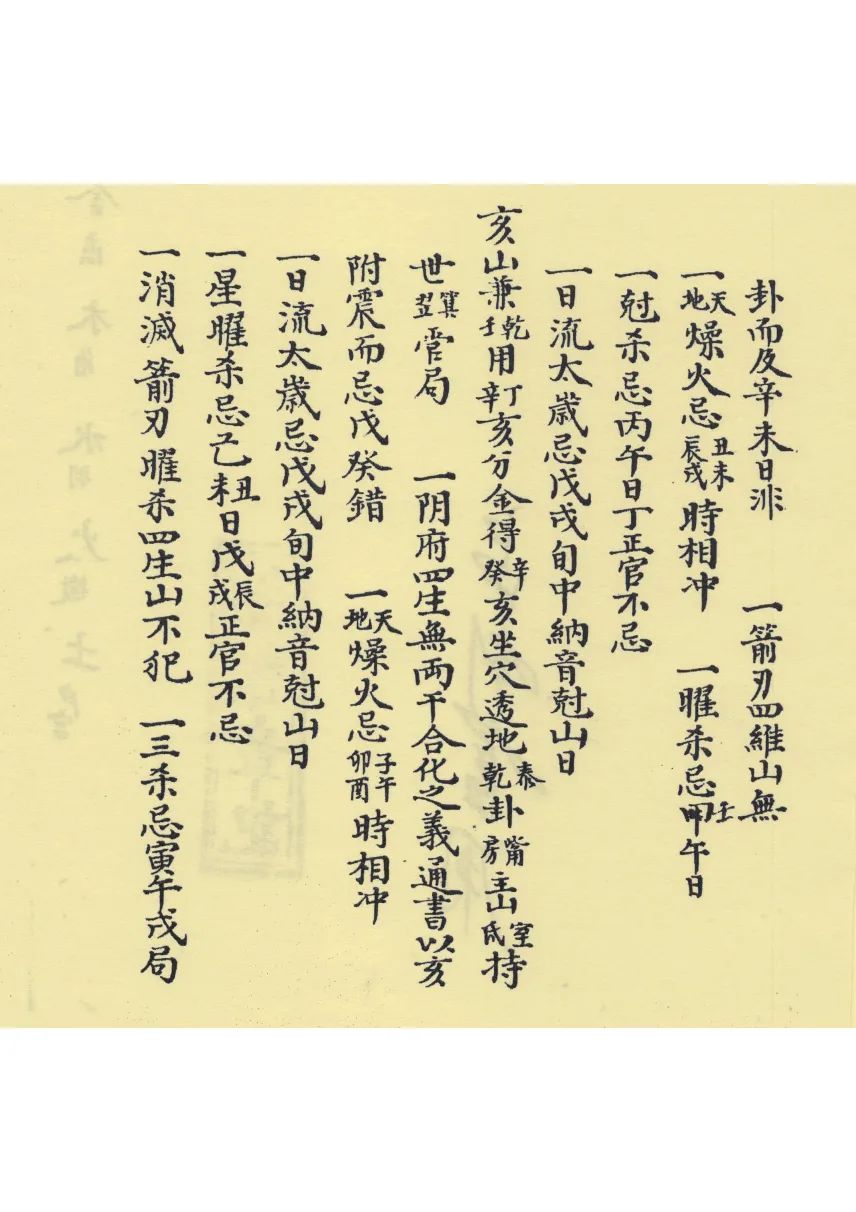 卦而及辛未日非 一箭刃四維山無
一天地燥火忌丑未辰戌時相冲 一曜杀忌甲壬午日
一尅杀忌丙午日丁正官不忌
一日流太歲忌戊戌旬中納音尅山日
亥山兼乾壬用丁辛亥分金得辛癸亥坐穴透地泰乾卦嘴房主山室氐持
世箕翌管局 一阴府四生無两干合化之義通書以亥
附震而忌戊癸錯 一天地燥火忌子午卯酉時相冲
一日流太歲忌戊戌旬中納音尅山日
一星曜杀忌己丑未日戊辰戌正官不忌
一消滅箭刃曜杀四生山不犯 一三杀忌寅午戌局